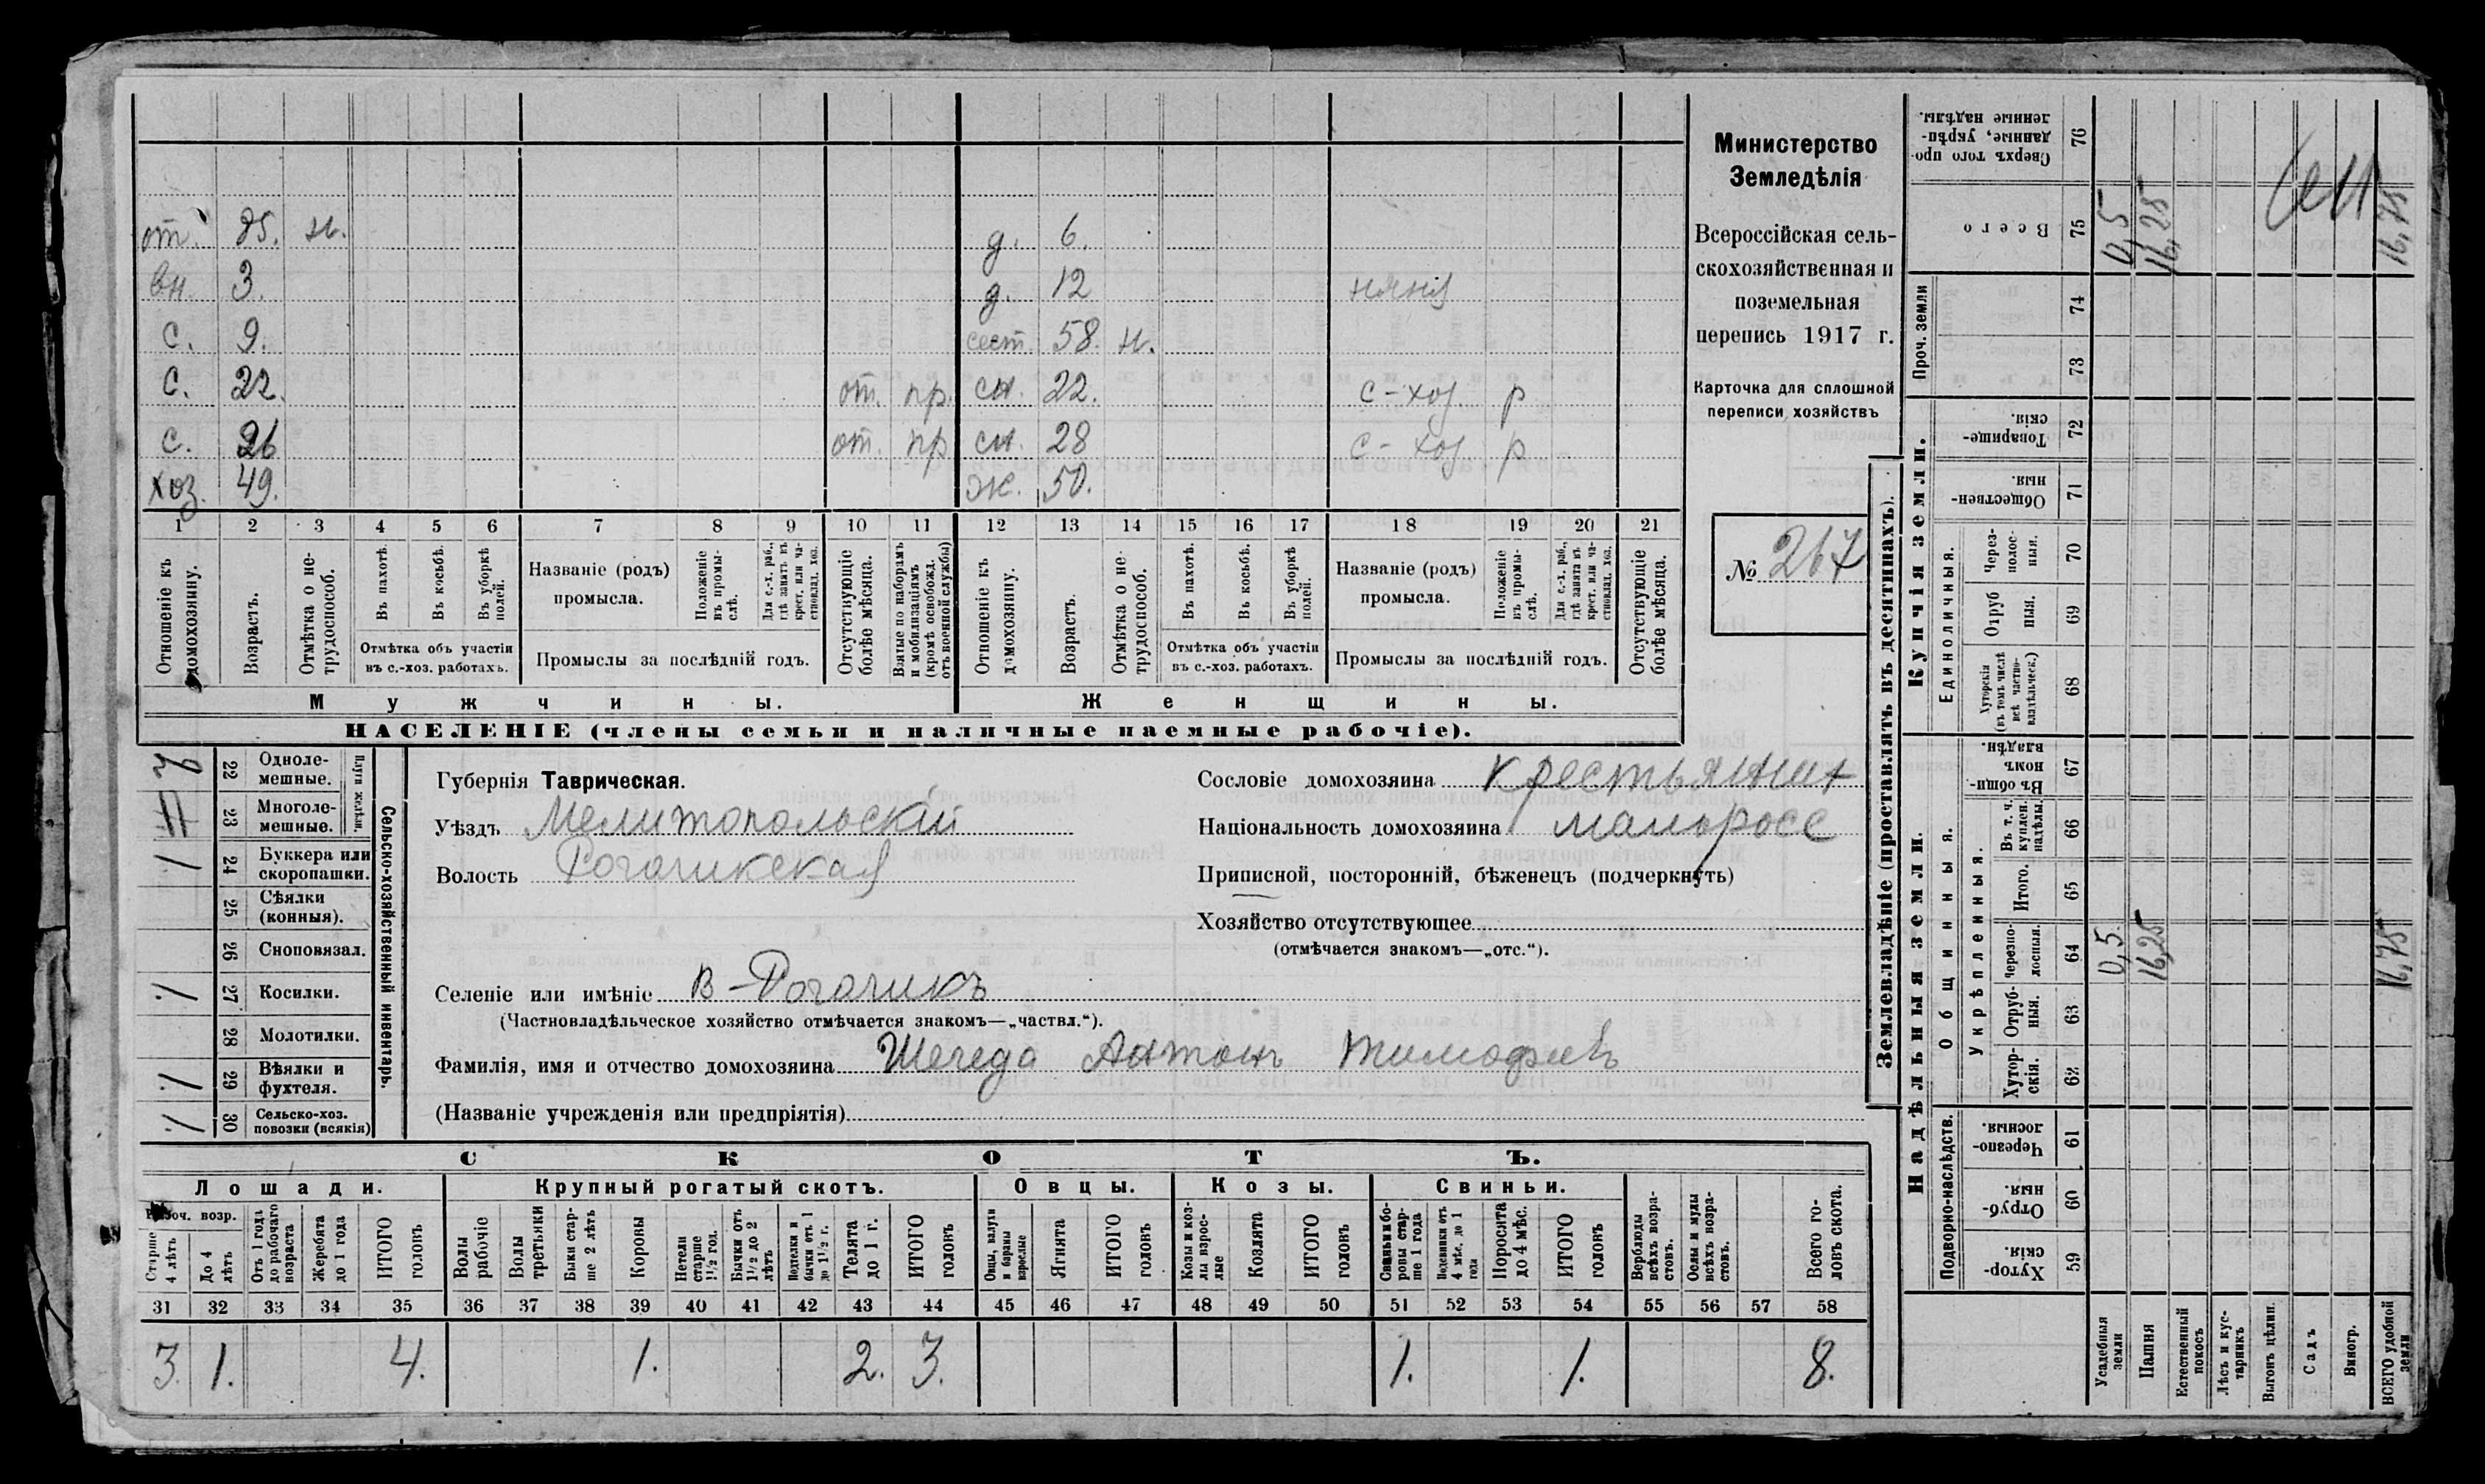 от. 85. н. д. 6.
вн. 3. д. 12 няня
с. 9. сест. 58. н.
с. 22. от. пр. сн. 22. с-хоз. р
с. 26 от. пр сн. 28 с-хоз. р
хоз. 49. ж. 50.
1 2 3 4 5 6 7 8 9 10 11 12 13 14 15 16 17 18 19 20 21
Отношеніе къ домохозяину.
Возрастъ.
Отмѣтка о не-трудоспособ.
Въ пахотѣ.
Въ косьбѣ.
Въ уборкѣ полей.
Отмѣтка объ участіи
въ с.-хоз. работахъ.
Названіе (родъ)
промысла.
Положеніе въ промы-слѣ.
Для с.-х. раб., гдѣ занятъ въ крест. или ча-стновлад. хоз.
Промыслы за послѣдній годъ.
Отсутствующіе болѣе мѣсяца.
Взятые по наборамъ и мобилизаціямъ (кромѣ освобожд. отъ военной службы)
Отношеніе къ домохозяину.
Возрастъ.
Отмѣтка о не-трудоспособ.
Въ пахотѣ.
Въ косьбѣ.
Въ уборкѣ полей.
Отмѣтка объ участіи
въ с.-хоз. работахъ.
Названіе (родъ)
промысла.
Положеніе въ промы-слѣ.
Для с.-х. раб., гдѣ занята въ крест. или ча-стновлад. хоз.
Промыслы за послѣдній годъ.
Отсутствующіе болѣе мѣсяца.
Мужчины. Женщины.
НАСЕЛЕНІЕ (члены семьи и наличные наемные рабочіе).
Министерство
Земледѣлія
Всероссійская сель-
скохозяйственная и
поземельная
перепись 1917 г.
Карточка для сплошной
переписи хозяйствъ
№ 267
22 Одноле-мешные.
23 Многоле-мешные.
Плуги желѣзн.
1 24 Буккера или скоропашки.
25 Сѣялки (конныя).
26 Сноповязал.
27 Косилки.
28 Молотилки.
29 Вѣялки и фухтеля.
30 Сельско-хоз. повозки (всякія)
Сельско-хозяйственный инвентарь.
Губернія Таврическая.
Уѣздъ Мелитопольскій
Волость Рогачикская
Сословіе домохозяина крестьянин
Національность домохозяина малоросс
Приписной, посторонній, бѣженецъ (подчеркнуть)
Хозяйство отсутствующее
(отмѣчается знакомъ—„отс.“).
Селеніе или имѣніе В-Рогачикъ
(Частновладѣльческое хозяйство отмѣчается знакомъ—„частвл.“).
Фамилія, имя и отчество домохозяина Шегеда Антонъ Тимофеевъ
(Названіе учрежденія или предпріятія)
СКОТЪ.
Лошади. Крупный рогатый скотъ. Овцы. Козы. Свиньи.
Рабоч. возр.
Старше 4 лѣтъ
До 4 лѣтъ
Отъ 1 года до рабочаго возраста
Жеребята до 1 года
ИТОГО головъ
Волы рабочіе
Волы третьяки
Быки стар-ше 2 лѣтъ
Коровы
Нетели старше 1½ год.
Бычки отъ 1½ до 2 лѣтъ
Подтелки и бычки отъ 1 до 1½ г.
Телята до 1 г.
ИТОГО головъ
Овцы, валухи и бараны взрослые
Ягнята
ИТОГО головъ
Козы и коз-лы взрос-лые
Козлята
ИТОГО головъ
Свиньи и бо-ровы стар-ше 1 года
Подсвинки отъ 4 мѣс. до 1 года
Поросята до 4 мѣс.
ИТОГО головъ
Верблюды всѣхъ возра-стовъ.
Ослы и мулы всѣхъ возра-стовъ.
Всего го-ловъ скота.
31 32 33 34 35 36 37 38 39 40 41 42 43 44 45 46 47 48 49 50 51 52 53 54 55 56 57 58
3. 1. 4. 1. 2. 3. 1. 1. 8.
Землевладѣніе (проставлять въ десятинахъ).
Надѣльныя земли.
Купчія земли.
Проч. земли
Подворно-наслѣдств.
Общинныя.
Укрѣпленныя.
Единоличныя.
Хутор-скія. 59
Отруб-ныя. 60
Черезпо-лосныя. 61
Хутор-скія. 62
Отруб-ныя. 63
Черезпо-лосныя. 64
Итого. 65
Въ т. ч. куплен. надѣлы. 66
Въ общин-номъ владѣн. 67
Хуторскія (въ томъ числѣ всѣ частно-владѣльческ.) 68
Отруб ныя. 69
Через-полос-ныя. 70
Обществен-ныя. 71
Товарище-скія. 72
73
74
Всего 75
Сверхъ того про-данные, укрѣп-ленные надѣлы. 76
Усадебныя земли 0,5 0,5
Пашня 16,25 16,25
Естественный покосъ
Лѣсъ и кус-тарникъ
Выгонъ цѣлин.
Садъ
Виногр.
ВСЕГО удобной земли 16,75 16,75